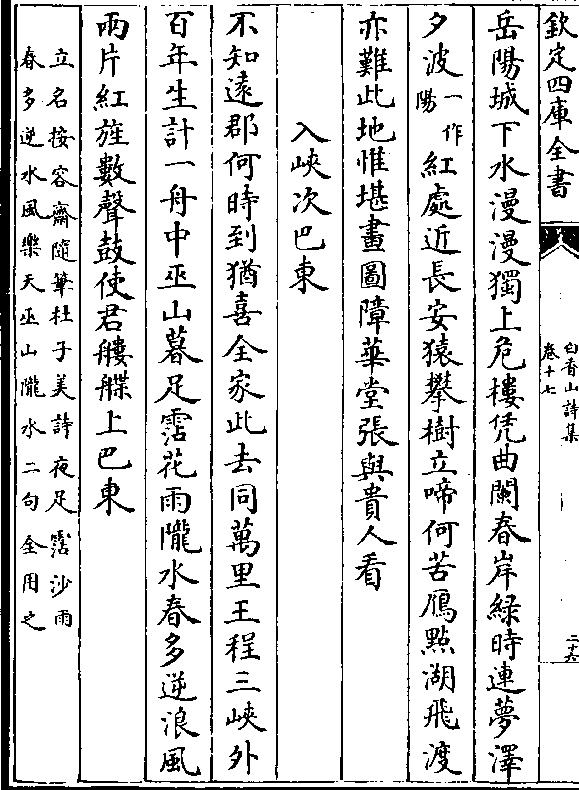 欽定四庫全書
白香山詩集
卷十七
二十六
岳陽城下水漫漫獨上危樓凭曲闌春岸緑時連夢澤
夕波一作陽紅處近長安猿攀樹立啼何苦鴈㸃湖飛渡
亦難此地惟堪畫圖障華堂張與貴人看
入峽次巴東
不知遠郡何時到猶喜全家此去同萬里王程三峽外
百年生計一舟中巫山暮足霑花雨隴水春多逆浪風
兩片紅旌數聲鼓使君艛艓上巴東
立名按容齋隨筆杜子美詩夜足霑沙雨
春多逆水風樂天巫山隴水二句全用之